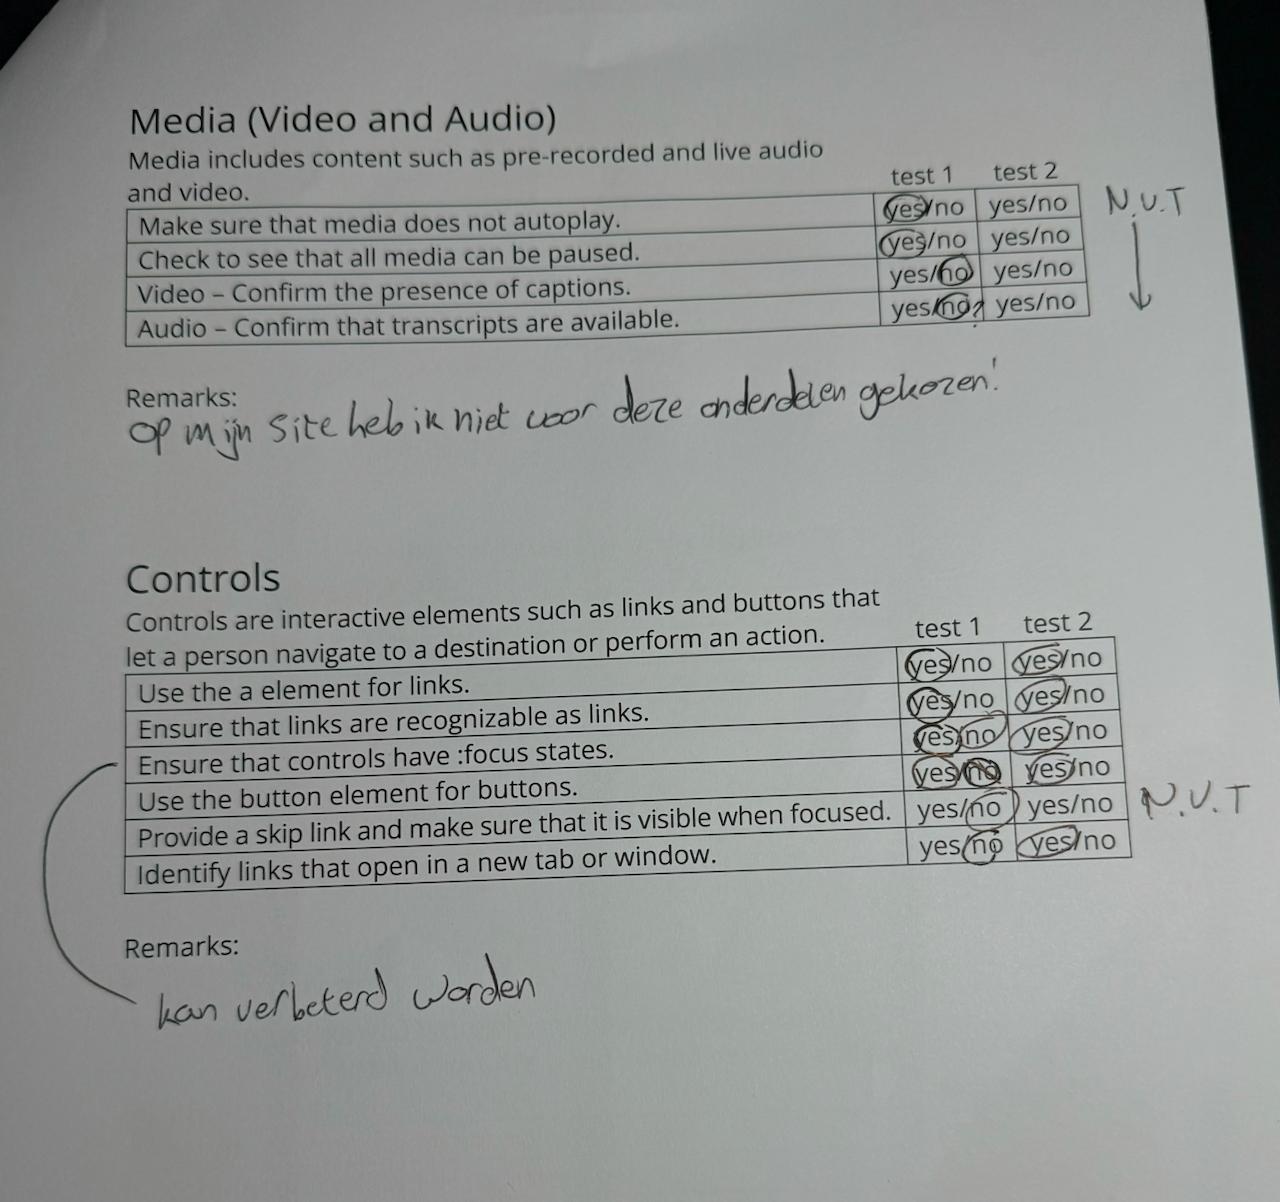 Media (Video and Audio)
Media includes content such as pre-recorded and live audio
and video.
test 1 test 2
Make sure that media does not autoplay. yes/no yes/no N.V.T
Check to see that all media can be paused. yes/no yes/no
Video – Confirm the presence of captions. yes/no yes/no
Audio – Confirm that transcripts are available. yes/no? yes/no
Remarks:
op mijn site heb ik niet voor deze onderdelen gekozen!
Controls
Controls are interactive elements such as links and buttons that
let a person navigate to a destination or perform an action.
test 1 test 2
Use the a element for links. yes/no yes/no
Ensure that links are recognizable as links. yes/no yes/no
Ensure that controls have :focus states. yes/no yes/no
Use the button element for buttons. yes/no yes/no
Provide a skip link and make sure that it is visible when focused. yes/no yes/no N.V.T
Identify links that open in a new tab or window. yes/no yes/no
Remarks:
kan verbeterd worden